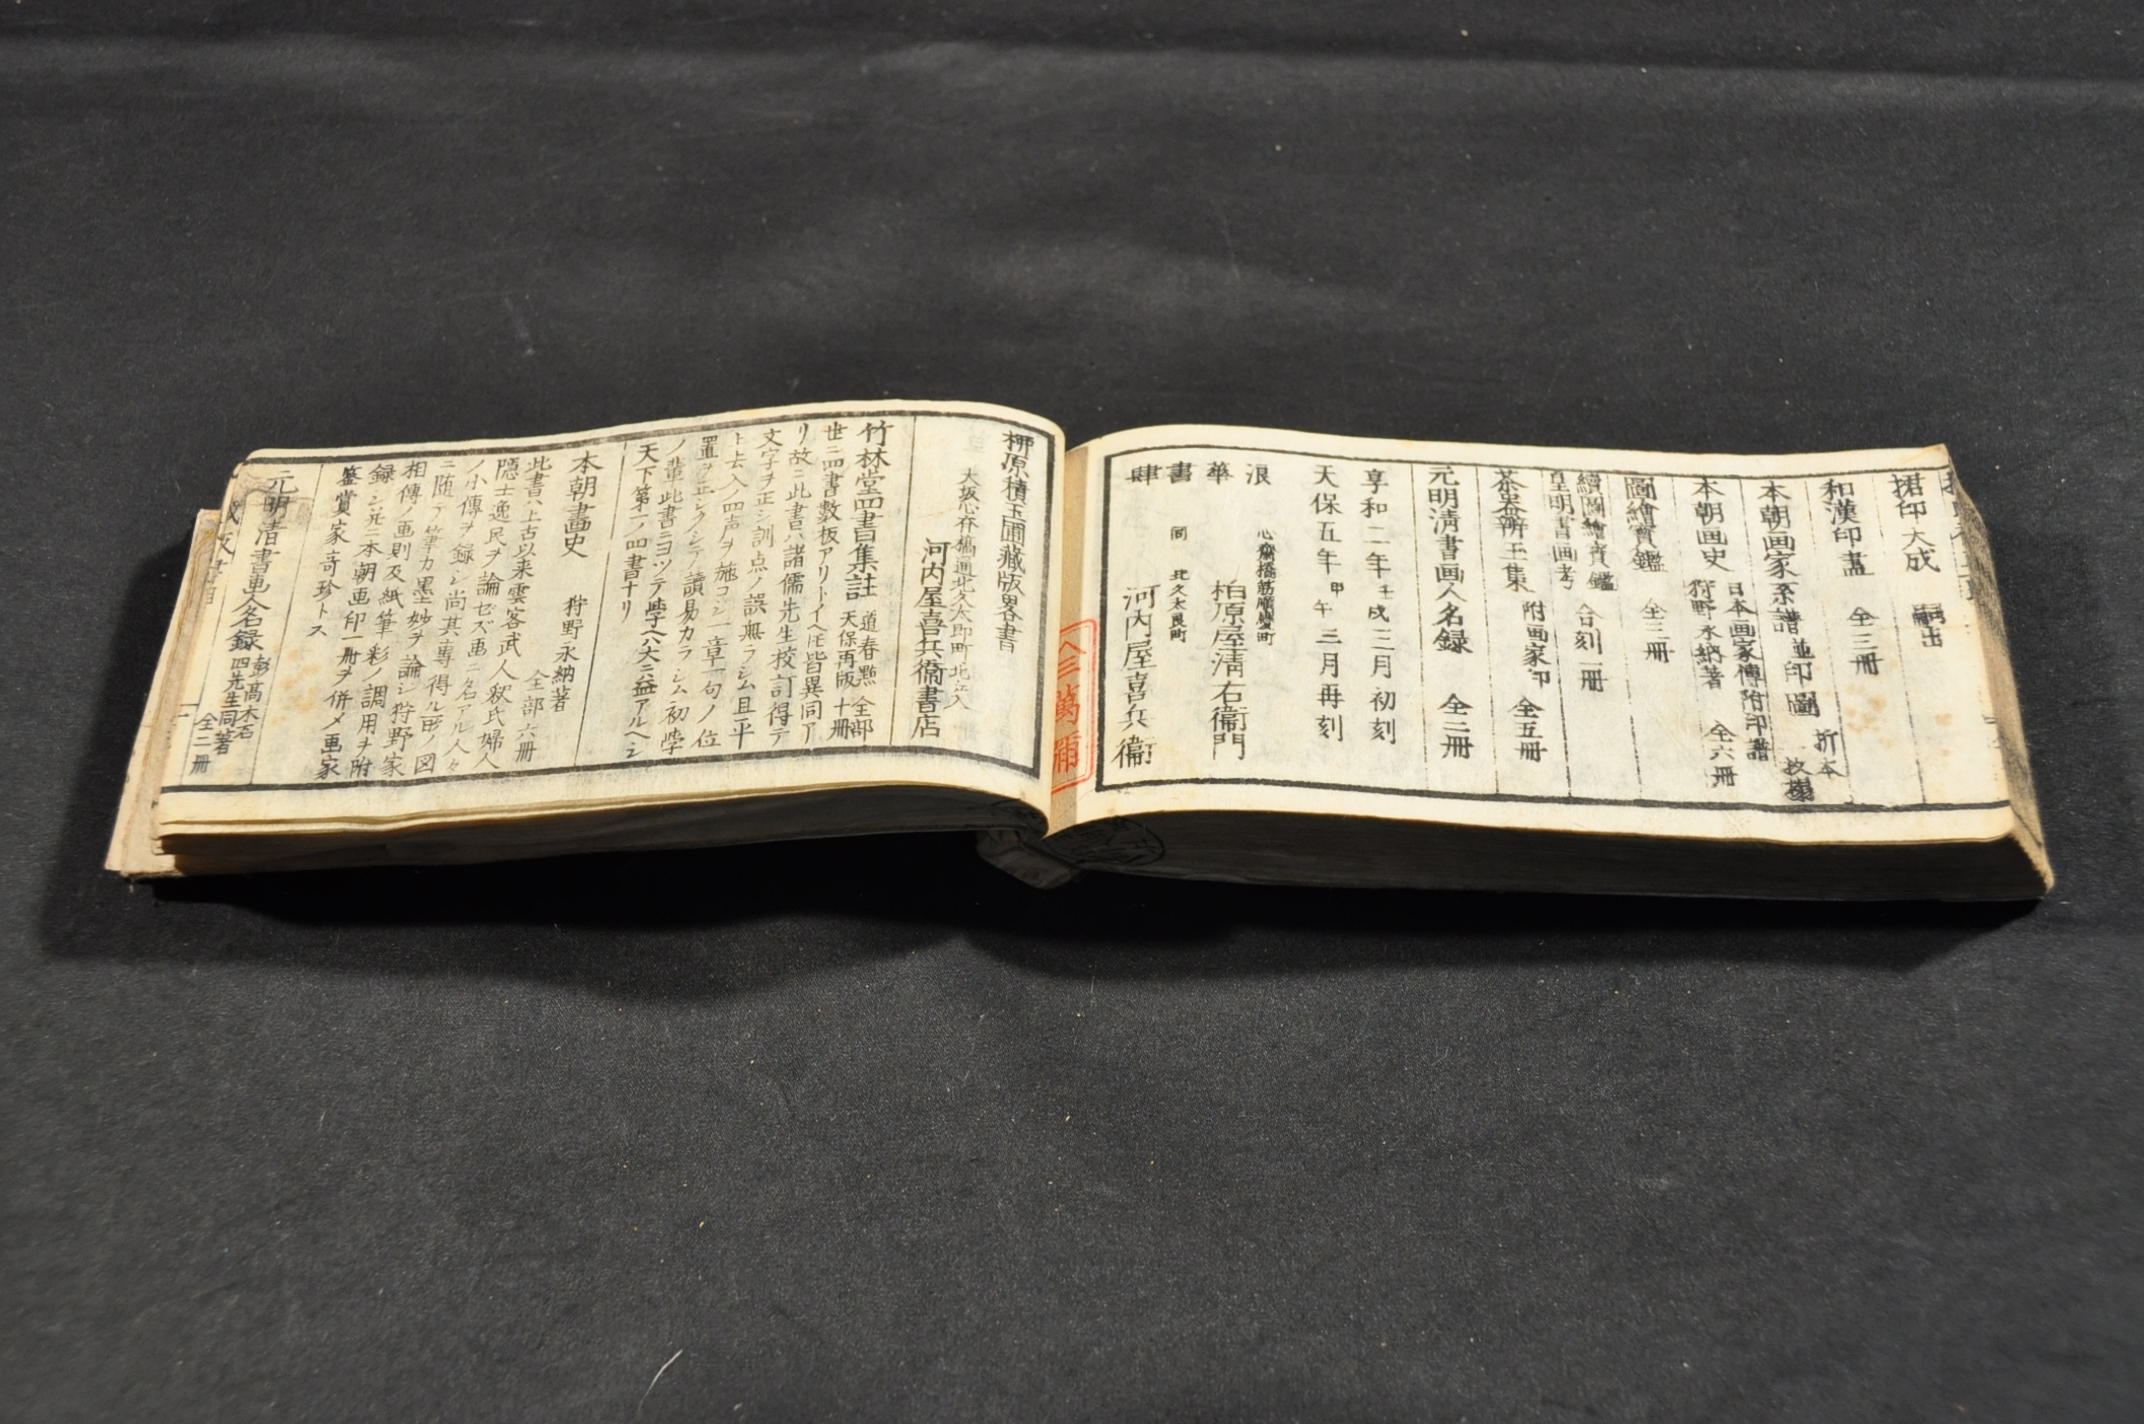 珺印大成 嗣出
和漢印盡 全三冊
本朝画家系譜 並印圖 折本 一枚摺
日本画家傳附印譜
本朝画史 狩野永納著 全六冊
圖繪寶鑑 全三冊
續圖繪寶鑑
皇明書画考 合刻一冊
茶器辨玉集 附画家印 全五冊
元明清書画人名録 全二冊
享和二年壬戌三月初刻
天保五年甲午三月再刻
浪華書肆
心齋橋筋順慶町
柏原屋清右衞門
同 北久太良町
河内屋喜兵衞
柳原積玉圃藏版畧書
大坂心斎橋通北久太郎町北江入
河内屋喜兵衞書店
竹林堂四書集註 道春點 全部 天保再版 十冊
世ニ四書数板アリトイヘ𪜈皆異同ア
リ故ニ此書ハ諸儒先生校訂得テ
文字ヲ正シ訓点ノ誤無ラシム且平
上去入ノ四声ヲ施コシ一章一句ノ位
置ヲ正シクシテ讀易カラシム初学
ノ輩此書ニヨツテ学ヘハ大ニ益アルヘシ
天下第一ノ四書ナリ
本朝畫史 狩野永納著 全部六冊
此書ハ上古以来雲客武人釈氏婦人
隠士逸民ヲ論ゼズ画ニ名アル人々
ノ小傳ヲ録シ尚其専得ル所ノ図
ニ随テ筆力墨妙ヲ論シ狩野家
相傳ノ画則及紙筆彩ノ調用ヲ附
録シ并ニ本朝画印一冊ヲ併メ画家
鑒賞家奇珍トス
元明清書画人名録 彭髙木石 四先生同著 全二冊